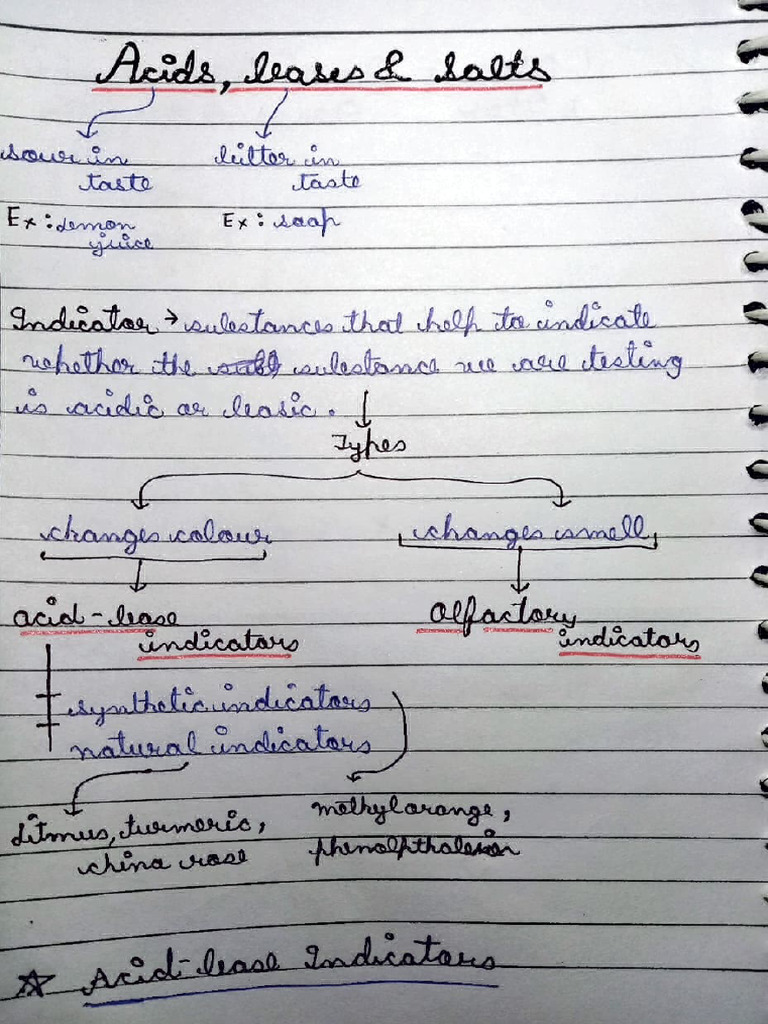 Acids, bases & salts
sour in bitter in
taste taste
Ex: Lemon Ex: soap
juice
Indicator → substances that help to indicate
whether the substance we are testing
is acidic or basic.
Types
changes colour changes smell
acid-base Olfactory
indicators indicators
synthetic indicators
natural indicators
Litmus, turmeric, methyl orange,
china rose
☆ Acid-base Indicators